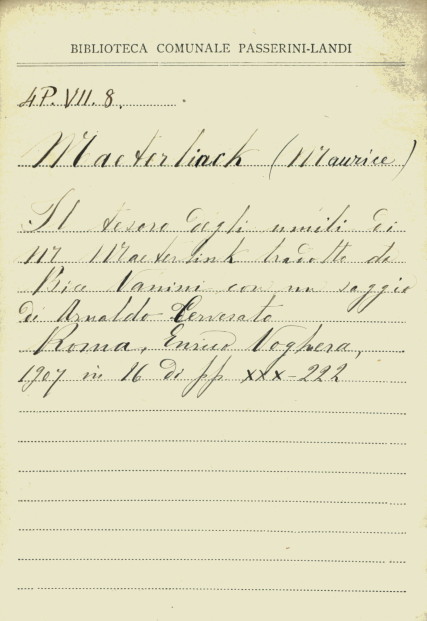 BIBLIOTECA COMUNALE PASSERINI-LANDI
4P. VII. 8.
Maeterliack (Maurice)
Il tesoro degli umili di
M Maeterlink tradotto da
Bice Vanini con un saggio
di Arnaldo Cervesato
Roma, Enrico Voghera,
1907 in 16 di pp XXX-222